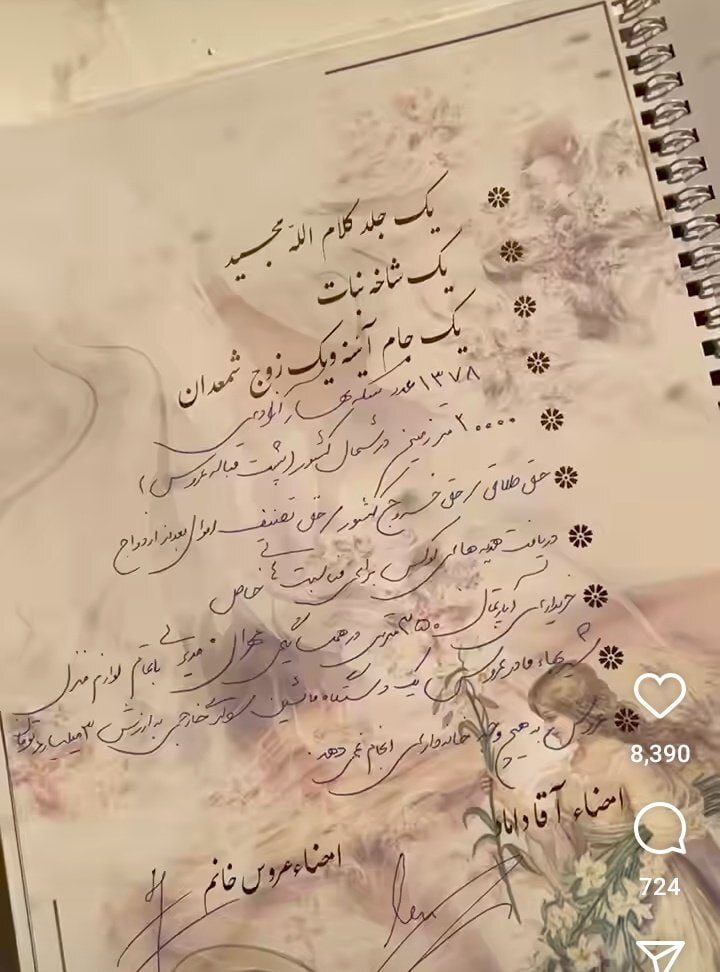 یک جلد کلام الله مجید
یک شاخه نبات
یک جام آئینه و یک زوج شمعدان
۱۳۷۸ عدد سکه بهار آزادی
۲۰۰۰۰ متر زمین در شمال کشور (پشت قباله عروس)
حق طلاق / حق خروج کشور / حق تصنیف اموال بعد از ازدواج
دریافت هدیه های لوکس برای مناسبت های خاص
خریداری آپارتمان ۳۵۰ متری در همت گیتی تهران با تمام لوازم منزل
شیربهاء مادر عروس یک دستگاه ماشین سواری خارجی به ارزش ۳ میلیارد تومان
عروس به هیچ وجه خانه داری انجام نمی دهد.
امضاء آقا داماد
امضاء عروس خانم
8,390
724